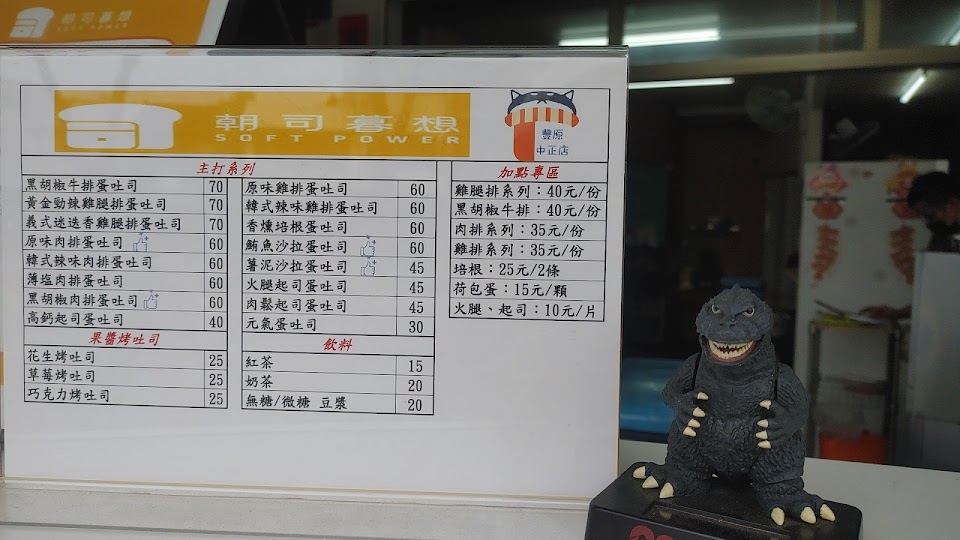 朝司暮想
SOFT POWER
朝司暮想
SOFT POWER
豐原
中正店
主打系列
黑胡椒牛排蛋吐司 70
黃金勁辣雞腿排蛋吐司 70
義式迷迭香雞腿排蛋吐司 70
原味肉排蛋吐司 60
韓式辣味肉排蛋吐司 60
薄塩肉排蛋吐司 60
黑胡椒肉排蛋吐司 60
高鈣起司蛋吐司 40
果醬烤吐司
花生烤吐司 25
草莓烤吐司 25
巧克力烤吐司 25
原味雞排蛋吐司 60
韓式辣味雞排蛋吐司 60
香燻培根蛋吐司 60
鮪魚沙拉蛋吐司 60
薯泥沙拉蛋吐司 45
火腿起司蛋吐司 45
肉鬆起司蛋吐司 45
元氣蛋吐司 30
飲料
紅茶 15
奶茶 20
無糖/微糖 豆漿 20
加點專區
雞腿排系列：40元/份
黑胡椒牛排：40元/份
肉排系列：35元/份
雞排系列：35元/份
培根：25元/2條
荷包蛋：15元/顆
火腿、起司：10元/片